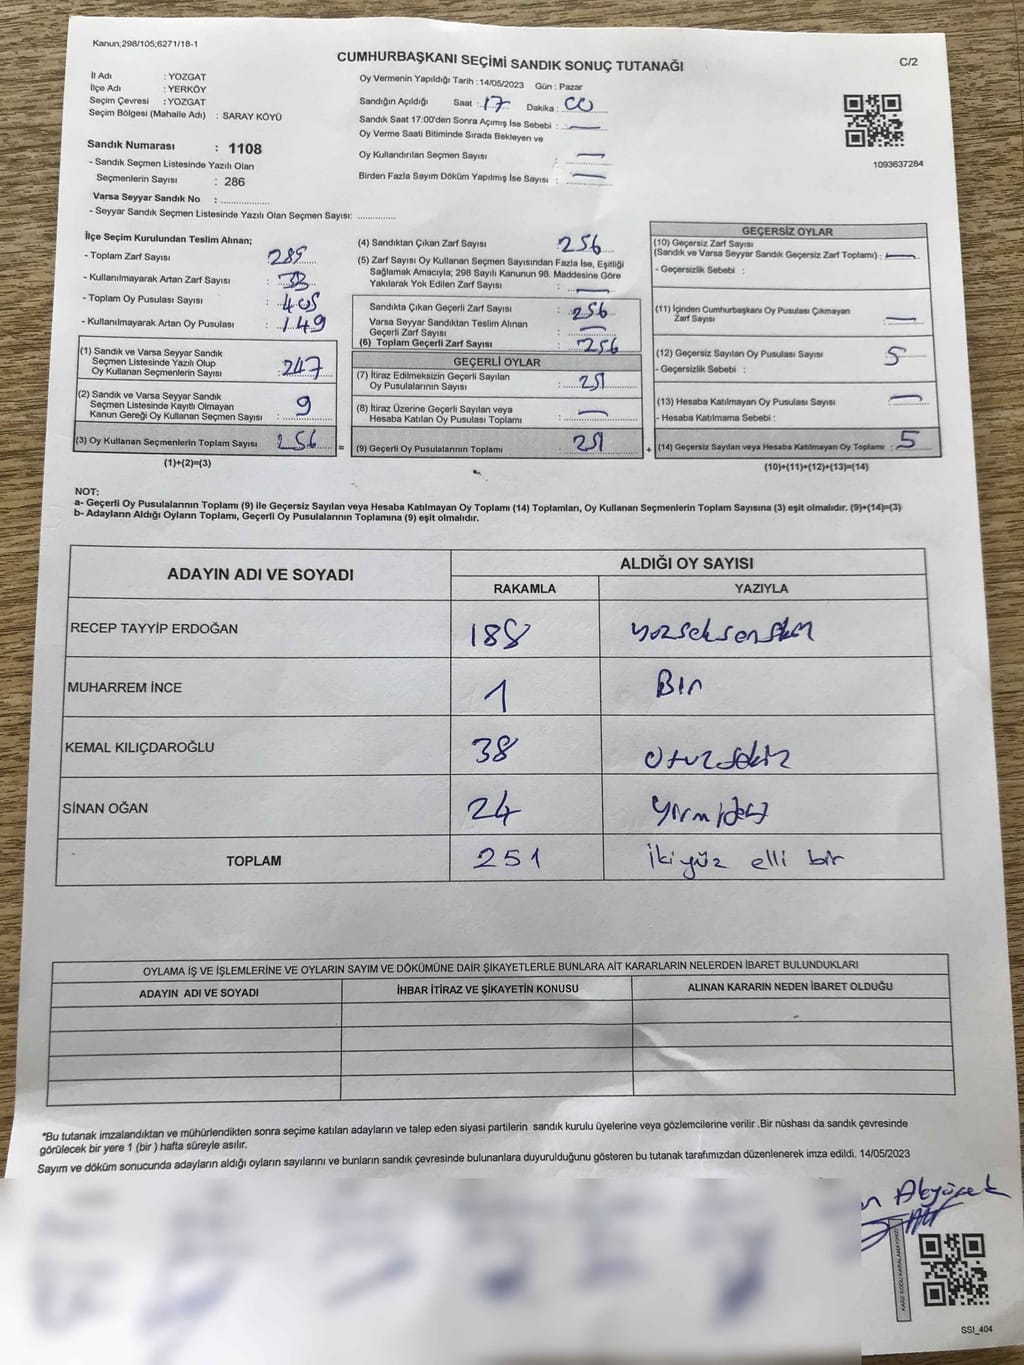 Kanun;298/105;6271/18-1
CUMHURBAŞKANI SEÇİMİ SANDIK SONUÇ TUTANAĞI
C/2
İl Adı : YOZGAT
İlçe Adı : YERKÖY
Seçim Çevresi : YOZGAT
Seçim Bölgesi (Mahalle Adı) : SARAY KÖYÜ
Sandık Numarası : 1108
- Sandık Seçmen Listesinde Yazılı Olan
Seçmenlerin Sayısı : 286
Varsa Seyyar Sandık No : ....................
- Seyyar Sandık Seçmen Listesinde Yazılı Olan Seçmen Sayısı: ............
Oy Vermenin Yapıldığı Tarih : 14/05/2023 Gün : Pazar
Sandığın Açıldığı Saat : 17 Dakika : 00
Sandık Saat 17:00'den Sonra Açımış İse Sebebi : —
Oy Verme Saati Bitiminde Sırada Bekleyen ve
Oy Kullandırılan Seçmen Sayısı : —
Birden Fazla Sayım Döküm Yapılmış İse Sayısı : —
1093637284
İlçe Seçim Kurulundan Teslim Alınan;
- Toplam Zarf Sayısı : 289
- Kullanılmayarak Artan Zarf Sayısı : 33
- Toplam Oy Pusulası Sayısı : 405
- Kullanılmayarak Artan Oy Pusulası : 149
(1) Sandık ve Varsa Seyyar Sandık
Seçmen Listesinde Yazılı Olup
Oy Kullanan Seçmenlerin Sayısı : 247
(2) Sandık ve Varsa Seyyar Sandık
Seçmen Listesinde Kayıtlı Olmayan
Kanun Gereği Oy Kullanan Seçmen Sayısı : 9
(3) Oy Kullanan Seçmenlerin Toplam Sayısı : 256 =
(1)+(2)=(3)
(4) Sandıktan Çıkan Zarf Sayısı : 256
(5) Zarf Sayısı Oy Kullanan Seçmen Sayısından Fazla İse, Eşitliği
Sağlamak Amacıyla; 298 Sayılı Kanunun 98. Maddesine Göre
Yakılarak Yok Edilen Zarf Sayısı : —
Sandıkta Çıkan Geçerli Zarf Sayısı : 256
Varsa Seyyar Sandıktan Teslim Alınan
Geçerli Zarf Sayısı : —
(6) Toplam Geçerli Zarf Sayısı : 256
GEÇERLİ OYLAR
(7) İtiraz Edilmeksizin Geçerli Sayılan
Oy Pusulalarının Sayısı : 251
(8) İtiraz Üzerine Geçerli Sayılan veya
Hesaba Katılan Oy Pusulası Toplamı : —
(9) Geçerli Oy Pusulalarının Toplamı : 251 +
GEÇERSİZ OYLAR
(10) Geçersiz Zarf Sayısı
(Sandık ve Varsa Seyyar Sandık Geçersiz Zarf Toplamı) : —
- Geçersizlik Sebebi :
(11) İçinden Cumhurbaşkanı Oy Pusulası Çıkmayan
Zarf Sayısı : —
(12) Geçersiz Sayılan Oy Pusulası Sayısı : 5
- Geçersizlik Sebebi :
(13) Hesaba Katılmayan Oy Pusulası Sayısı : —
- Hesaba Katılmama Sebebi :
(14) Geçersiz Sayılan veya Hesaba Katılmayan Oy Toplamı : 5
(10)+(11)+(12)+(13)=(14)
NOT:
a- Geçerli Oy Pusulalarının Toplamı (9) ile Geçersiz Sayılan veya Hesaba Katılmayan Oy Toplamı (14) Toplamları, Oy Kullanan Seçmenlerin Toplam Sayısına (3) eşit olmalıdır. (9)+(14)=(3)
b- Adayların Aldığı Oyların Toplamı, Geçerli Oy Pusulalarının Toplamına (9) eşit olmalıdır.
ADAYIN ADI VE SOYADI
ALDIĞI OY SAYISI
RAKAMLA YAZIYLA
RECEP TAYYİP ERDOĞAN 188 yüzseksensekiz
MUHARREM İNCE 1 Bir
KEMAL KILIÇDAROĞLU 38 otuzsekiz
SİNAN OĞAN 24 yirmidört
TOPLAM 251 İkiyüz elli bir
OYLAMA İŞ VE İŞLEMLERİNE VE OYLARIN SAYIM VE DÖKÜMÜNE DAİR ŞİKAYETLERLE BUNLARA AİT KARARLARIN NELERDEN İBARET BULUNDUKLARI
ADAYIN ADI VE SOYADI İHBAR İTİRAZ VE ŞİKAYETİN KONUSU ALINAN KARARIN NEDEN İBARET OLDUĞU
*Bu tutanak imzalandıktan ve mühürlendikten sonra seçime katılan adayların ve talep eden siyasi partilerin sandık kurulu üyelerine veya gözlemcilerine verilir .Bir nüshası da sandık çevresinde
görülecek bir yere 1 (bir ) hafta süreyle asılır.
Sayım ve döküm sonucunda adayların aldığı oyların sayılarını ve bunların sandık çevresinde bulunanlara duyurulduğunu gösteren bu tutanak tarafımızdan düzenlenerek imza edildi. 14/05/2023
Akyürek
KARE KODU KARALAMAYINIZ!
SSI_404